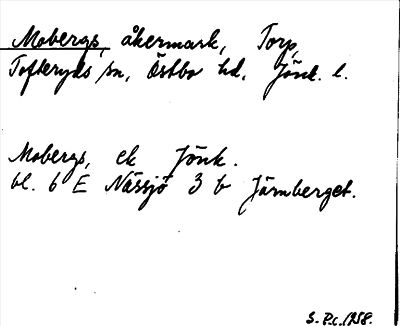 Mobergs, åkermark, Torp,
Tofteryds sn, Östbo hd, Jönk. l.
Mobergs, ek Jönk.
bl. 6 E Nässjö 3 b Järnberget.
S. P.c. 1958.